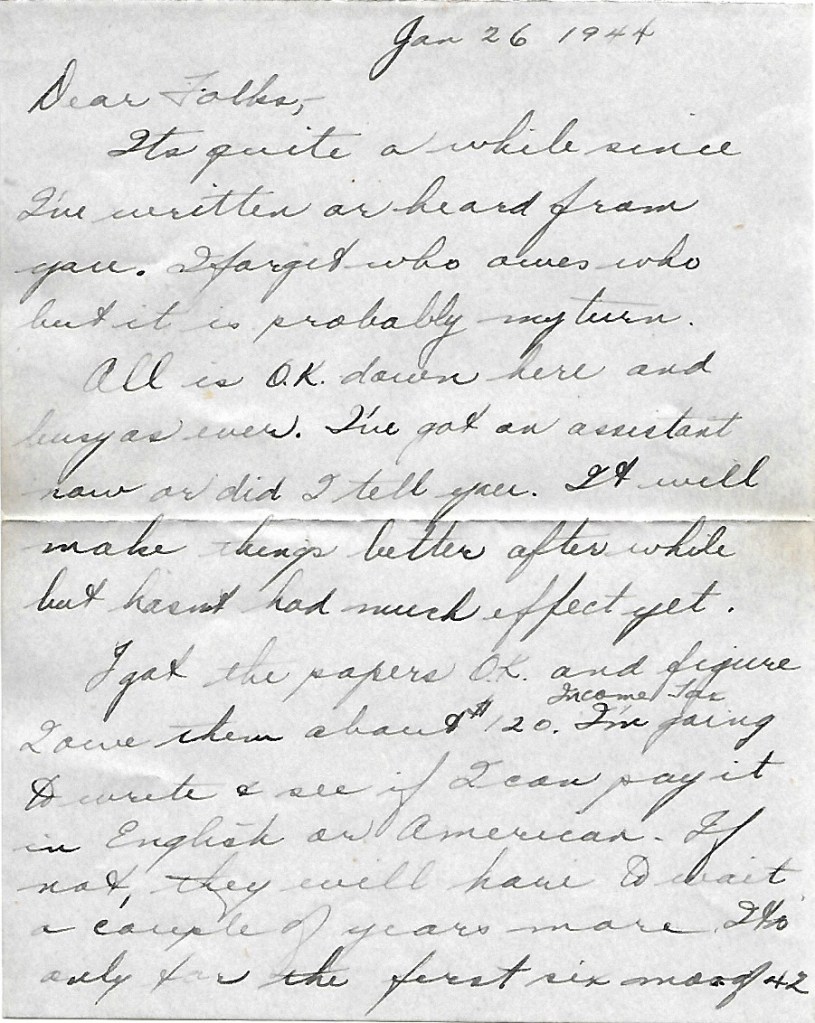 Jan 26 1944
Dear Folks,-
Its quite a while since
I've written or heard from
you. I forget who owes who
but it is probably my turn.
All is O.K. down here and
busy as ever. I've got an assistant
now or did I tell you. It will
make things better after while
but hasnt had much effect yet.
I got the papers O.K. and figure
Income Tax
I owe them about $120. I'm going
to write & see if I can pay it
in English or American. If
not, they will have to wait
a couple of years more. Its
only for the first six mos. of 42